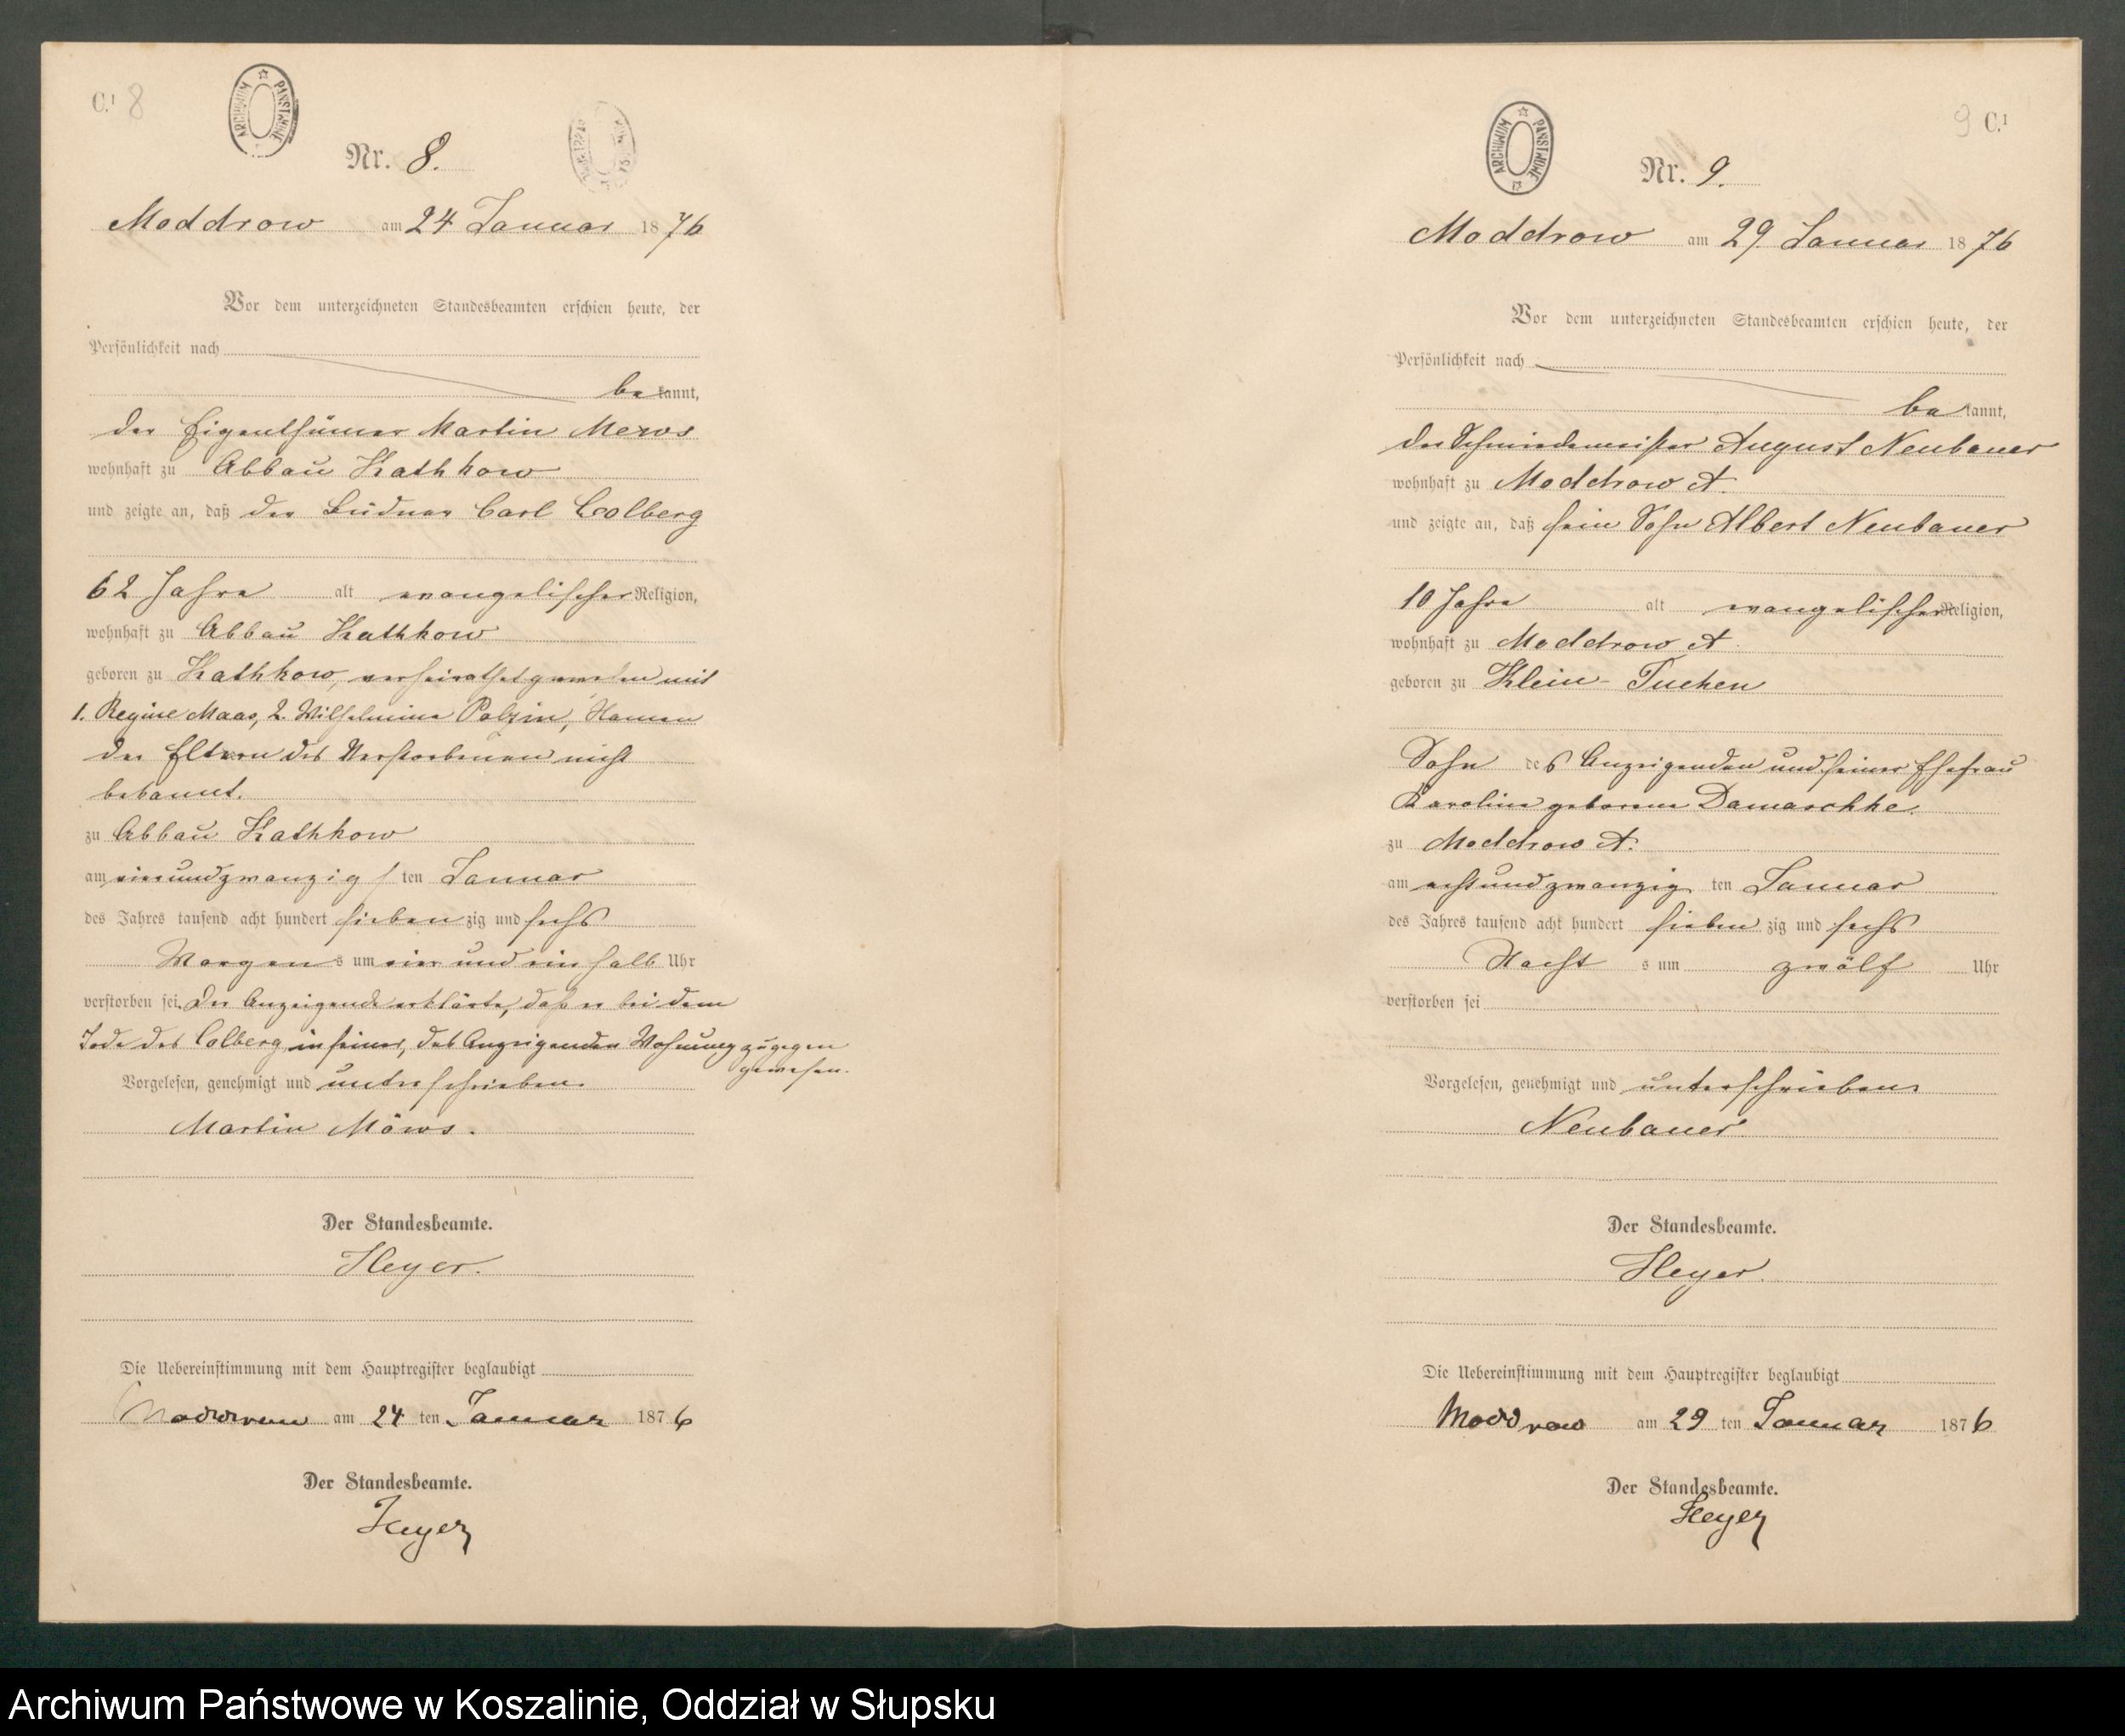 C.¹ 8
ARCHIWUM PAŃSTWOWE
Nr. 8.
Moddrow am 24 Januar 1876
Vor dem unterzeichneten Standesbeamten erschien heute, der
Persönlichkeit nach
bekannt,
der Eigenthümer Martin Mews
wohnhaft zu Abbau Kathkow
und zeigte an, daß der Büdner Carl Colberg
62 Jahre alt evangelischer Religion,
wohnhaft zu Abbau Kathkow
geboren zu Kathkow, verheirathet gewesen mit
1. Regine Maas, 2. Wilhelmine Polzin, Namen
der Eltern des Verstorbenen nicht
bekannt.
zu Abbau Kathkow
am vierundzwanzigsten Januar
des Jahres tausend acht hundert siebenzig und sechs
Morgens um vier und ein halb Uhr
verstorben sei. Der Anzeigende erklärte, daß er bei dem
Tode des Colberg in seiner, des Anzeigenden Wohnung zugegen
gewesen.
Vorgelesen, genehmigt und unterschrieben.
Martin Möws.
Der Standesbeamte.
Heyer.
Die Uebereinstimmung mit dem Hauptregister beglaubigt
Moddrow am 24 ten Januar 1876
Der Standesbeamte.
Heyer
9 C.¹
ARCHIWUM PAŃSTWOWE
Nr. 9.
Moddrow am 29. Januar 1876
Vor dem unterzeichneten Standesbeamten erschien heute, der
Persönlichkeit nach
bekannt,
der Schmiedemeister August Neubauer
wohnhaft zu Moddrow A.
und zeigte an, daß sein Sohn Albert Neubauer
10 Jahre alt evangelischer Religion,
wohnhaft zu Moddrow A.
geboren zu Klein-Tuchen
Sohn des Anzeigenden und seiner Ehefrau
Karoline geborene Damaschke.
zu Moddrow A.
am achtundzwanzig ten Januar
des Jahres tausend acht hundert siebenzig und sechs
Nachts um zwölf Uhr
verstorben sei
Vorgelesen, genehmigt und unterschrieben
Neubauer
Der Standesbeamte.
Heyer.
Die Uebereinstimmung mit dem Hauptregister beglaubigt
Moddrow am 29 ten Januar 1876
Der Standesbeamte.
Heyer
Archiwum Państwowe w Koszalinie, Oddział w Słupsku